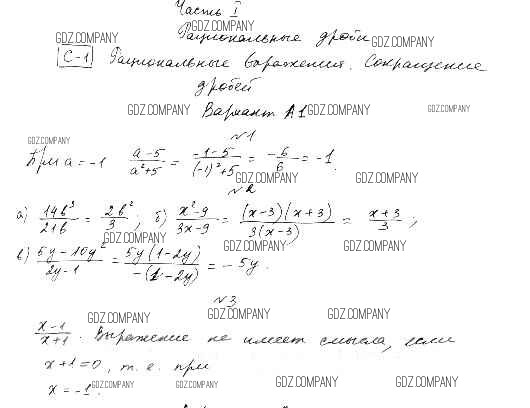 Часть I
Рациональные дроби
GDZ.COMPANY GDZ.COMPANY GDZ.COMPANY
С-1 Рациональные выражения. Сокращение
дробей
GDZ.COMPANY Вариант А1 GDZ.COMPANY GDZ.COMPANY
№1
GDZ.COMPANY
При a = -1 (a-5)/(a²+5) = (-1-5)/((-1)²+5) = -6/6 = -1.
GDZ.COMPANY GDZ.COMPANY
№2
а) 14b³/21b = 2b²/3; б) (x²-9)/(3x-9) = ((x-3)(x+3))/(3(x-3)) = (x+3)/3;
GDZ.COMPANY GDZ.COMPANY GDZ.COMPANY
в) (5y-10y²)/(2y-1) = (5y(1-2y))/(-(1-2y)) = -5y.
№3
GDZ.COMPANY GDZ.COMPANY GDZ.COMPANY
(x-1)/(x+1). Выражение не имеет смысла, если
x+1=0, т.е. при
x = -1.
GDZ.COMPANY GDZ.COMPANY GDZ.COMPANY GDZ.COMPANY